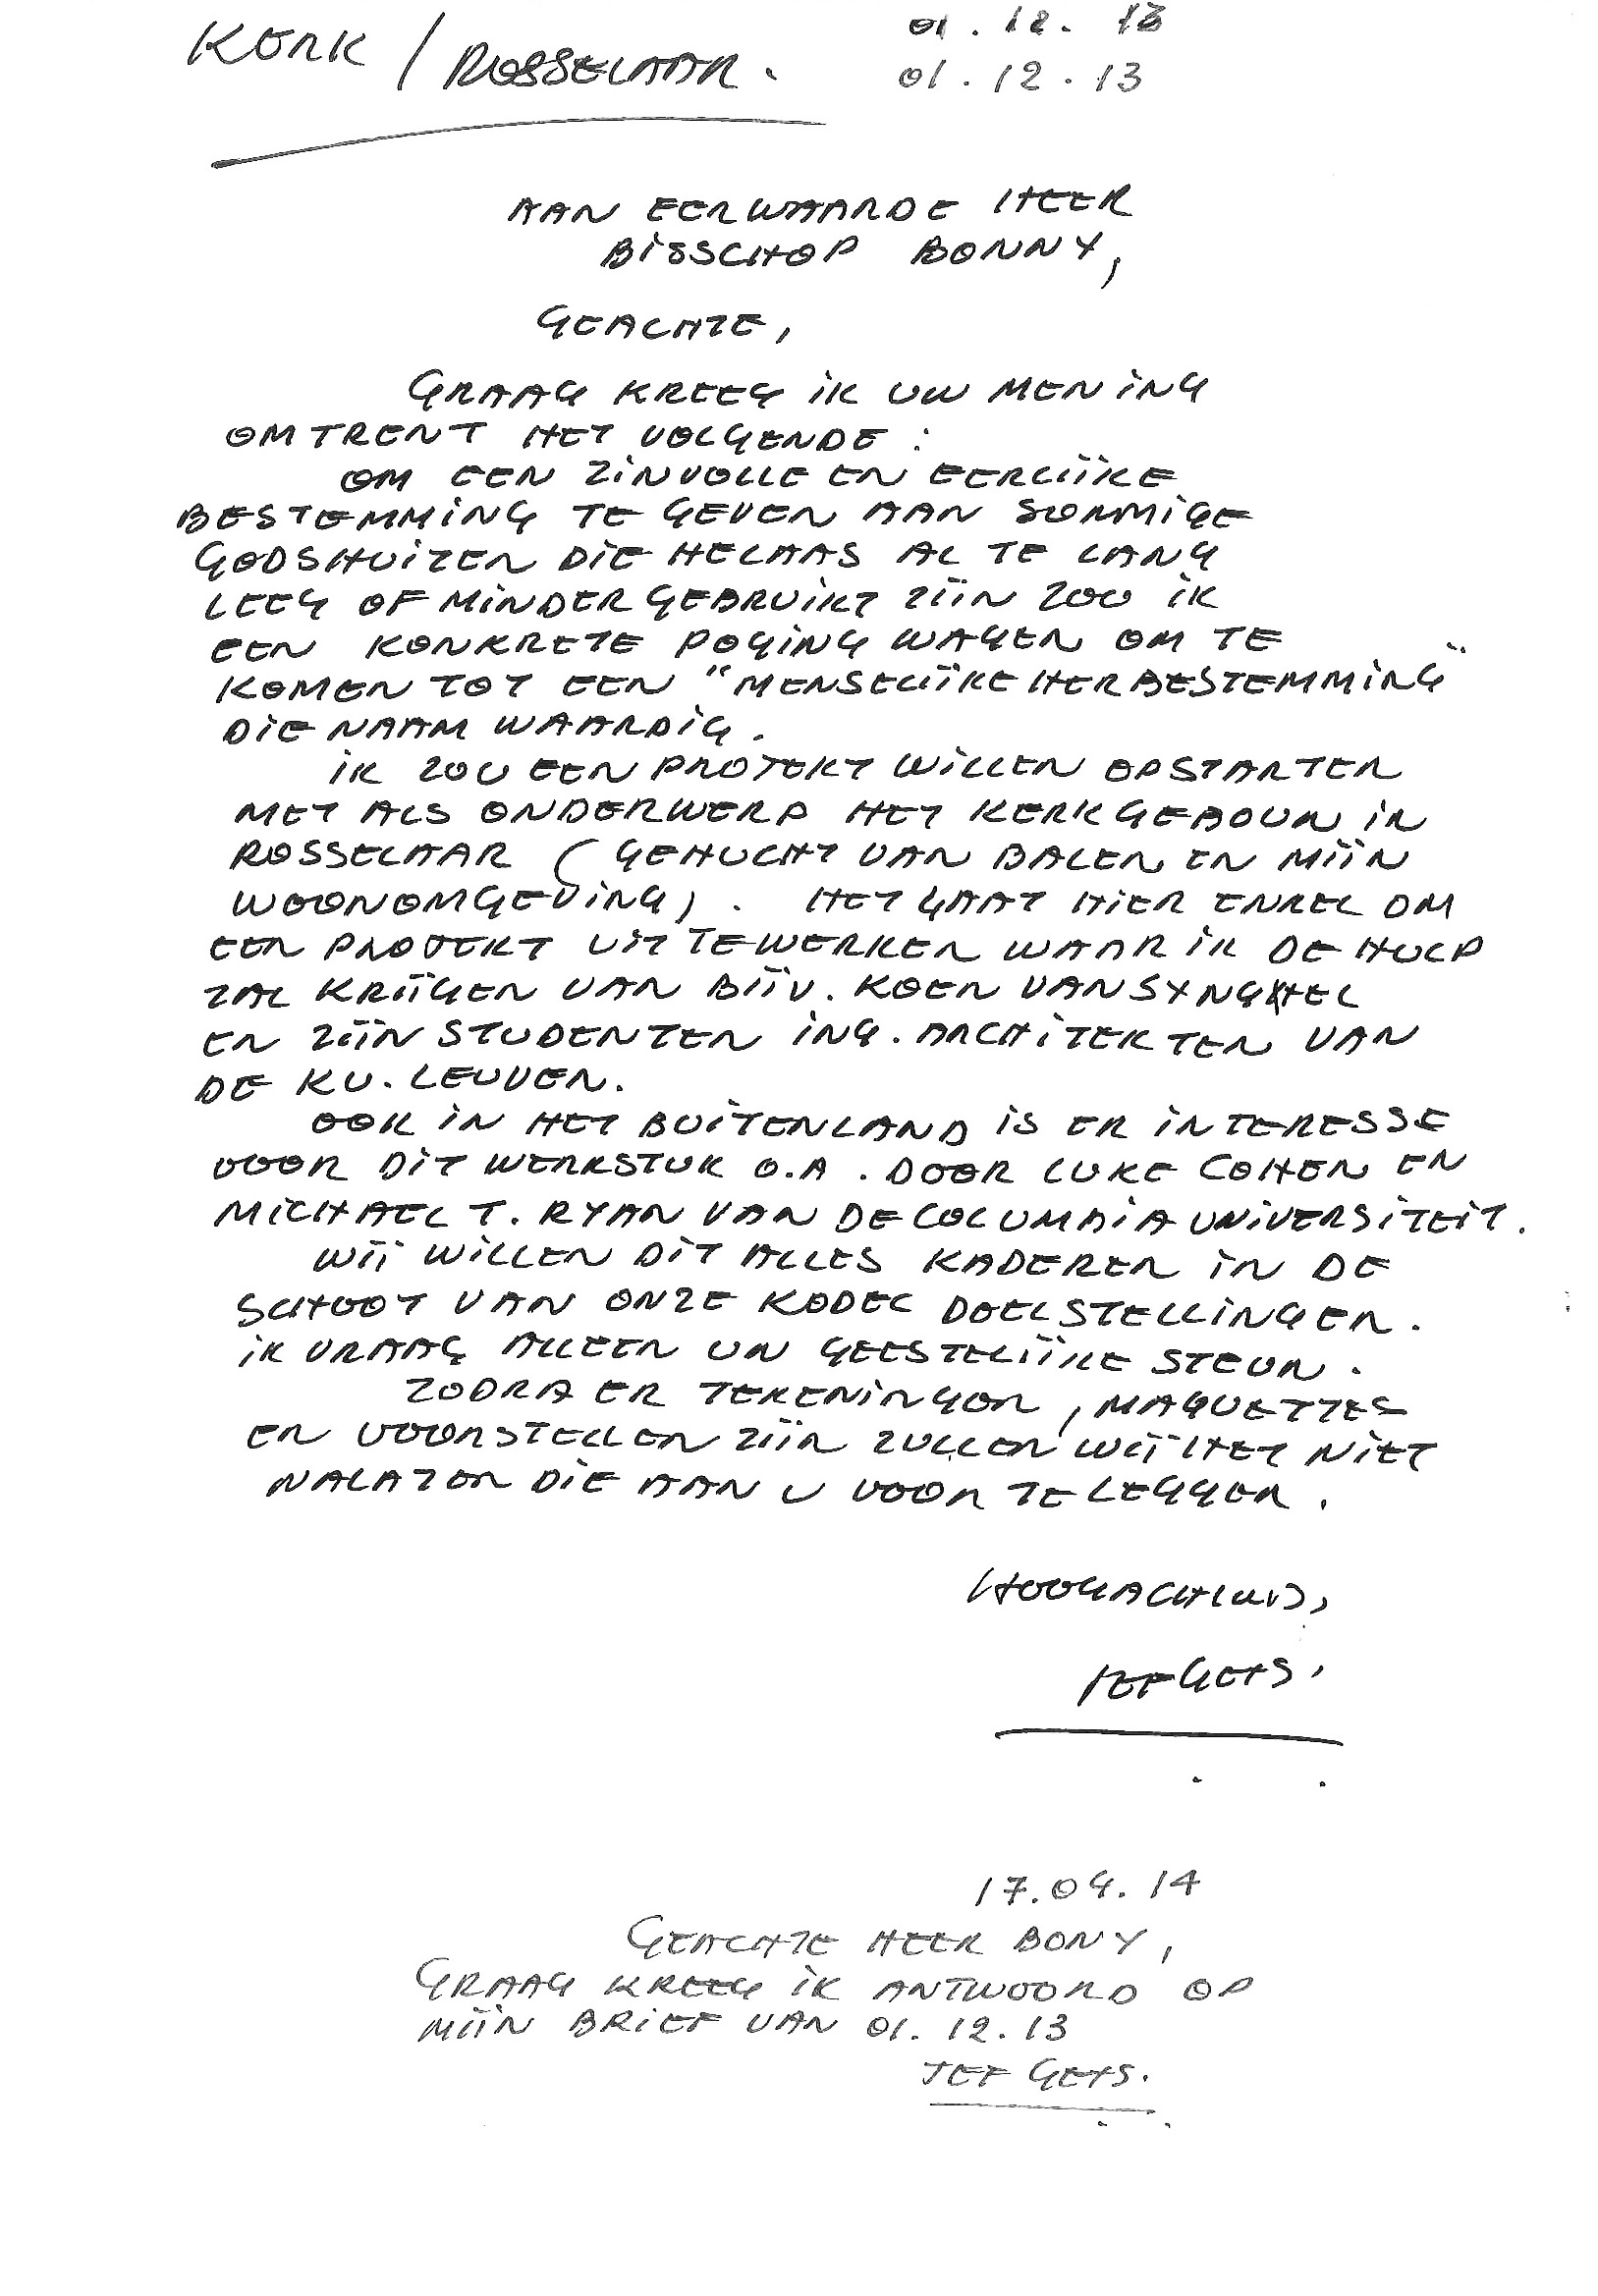 KERK / ROSSELAAR.
01.12.13
01.12.13
AAN EERWAARDE HEER
BISSCHOP BONNY,
GEACHTE,
GRAAG KREEG IK UW MENING
OMTRENT HET VOLGENDE :
OM EEN ZINVOLLE EN EERLIJKE
BESTEMMING TE GEVEN AAN SOMMIGE
GODSHUIZEN DIE HELAAS AL TE LANG
LEEG OF MINDER GEBRUIKT ZIJN ZOU IK
EEN KONKRETE POGING WAGEN OM TE
KOMEN TOT EEN "MENSELIJKE HERBESTEMMING"
DIE NAAM WAARDIG.
IK ZOU EEN PROJEKT WILLEN OPSTARTEN
MET ALS ONDERWERP HET KERKGEBOUW IN
ROSSELAAR (GEHUCHT VAN BALEN EN MIJN
WOONOMGEVING). HET GAAT HIER ENKEL OM
EEN PROJEKT UIT TE WERKEN WAAR IK DE HULP
ZAL KRIJGEN VAN BIJV. KOEN VAN SYNGHEL
EN ZIJN STUDENTEN ING. ARCHITEKTEN VAN
DE KU. LEUVEN.
OOK IN HET BUITENLAND IS ER INTERESSE
VOOR DIT WERKSTUK O.A. DOOR LUKE COHEN EN
MICHAEL T. RYAN VAN DE COLUMBIA UNIVERSITEIT.
WIJ WILLEN DIT ALLES KADEREN IN DE
SCHOOT VAN ONZE KODEL DOELSTELLINGEN.
IK VRAAG ALLEEN UW GEESTELIJKE STEUN.
ZODRA ER TEKENINGEN, MAQUETTES
EN VOORSTELLEN ZIJN ZULLEN WIJ HET NIET
NALATEN DIE AAN U VOOR TE LEGGEN.
HOOGACHTEND,
JEF GEYS.
17.04.14
GEACHTE HEER BONY,
GRAAG KREEG IK ANTWOORD OP
MIJN BRIEF VAN 01.12.13
JEF GEYS.